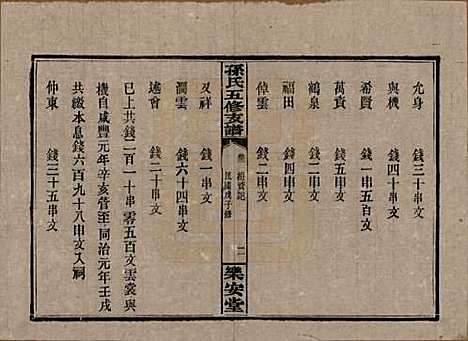 允身 錢三十串文
與機 錢四十串文
希賢 錢一串五百文
萬資 錢二串文
鶴泉 錢一串文
福田 錢四串文
倬雲 錢二串文
孫氏五修支譜
民國戊子修
二
樂安堂
又祥 錢一串文
澗雲 錢六十四串文
述會 錢二十串文
已上共錢二百一十串零五百文雲裳與
機自咸豐元年辛亥管至同治元年壬戌
共繳本息錢六百九十八串文入祠
仲東 錢三十五串文